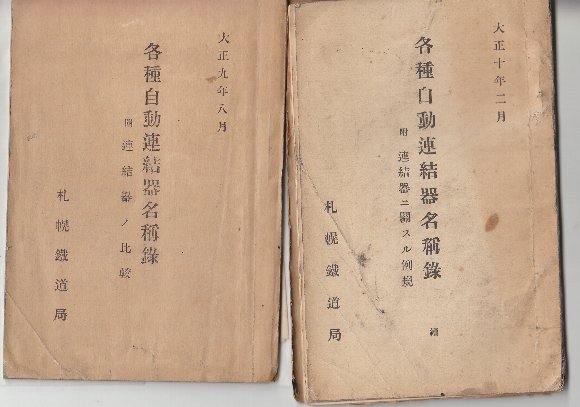 大正十年二月
各種自動連結器名稱錄
附 連結器ニ關スル例規
札幌鐵道局
大正九年八月
各種自動連結器名稱錄
附 連結器ノ比較
札幌鐵道局